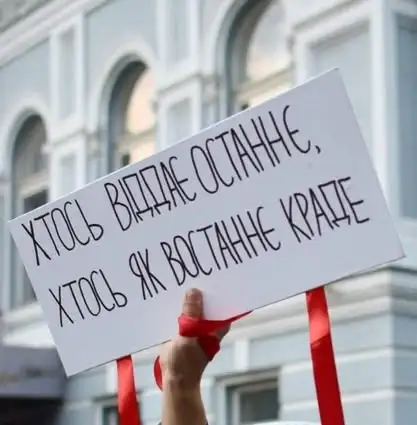 ХТОСЬ ВІДДАЄ ОСТАННЄ,
ХТОСЬ ЯК ВОСТАННЄ КРАДЕ